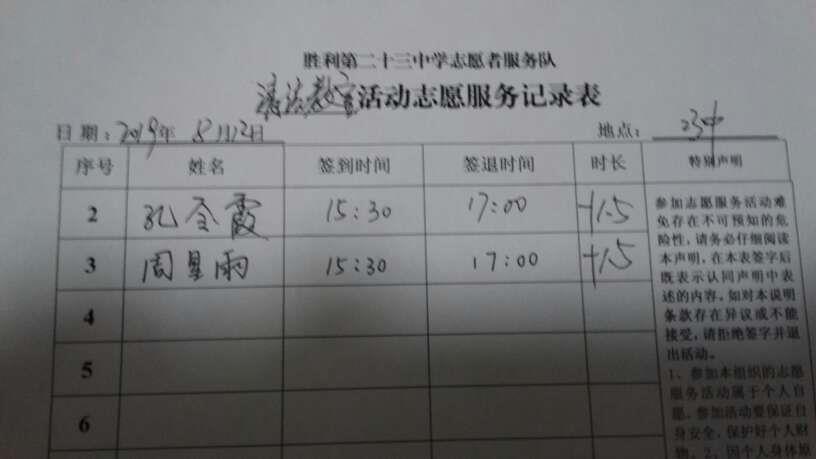 胜利第二十三中学志愿者服务队
清洁教室活动志愿服务记录表
日期:2019年5月12日 地点:23中
序号 姓名 签到时间 签退时间 时长 特别声明
2 孔令霞 15:30 17:00 +1.5
3 周星雨 15:30 17:00 +1.5
4
5
6
参加志愿服务活动难
免存在不可预知的危
险性,请务必仔细阅读
本声明,在本表签字后
既表示认同声明中表
述的内容,如对本说明
条款存在异议或不能
接受,请拒绝签字并退
出活动。
1、参加本组织的志愿
服务活动属于个人自
愿,参加活动要保证自
身安全,保护好个人财
物。2、因个人身体原